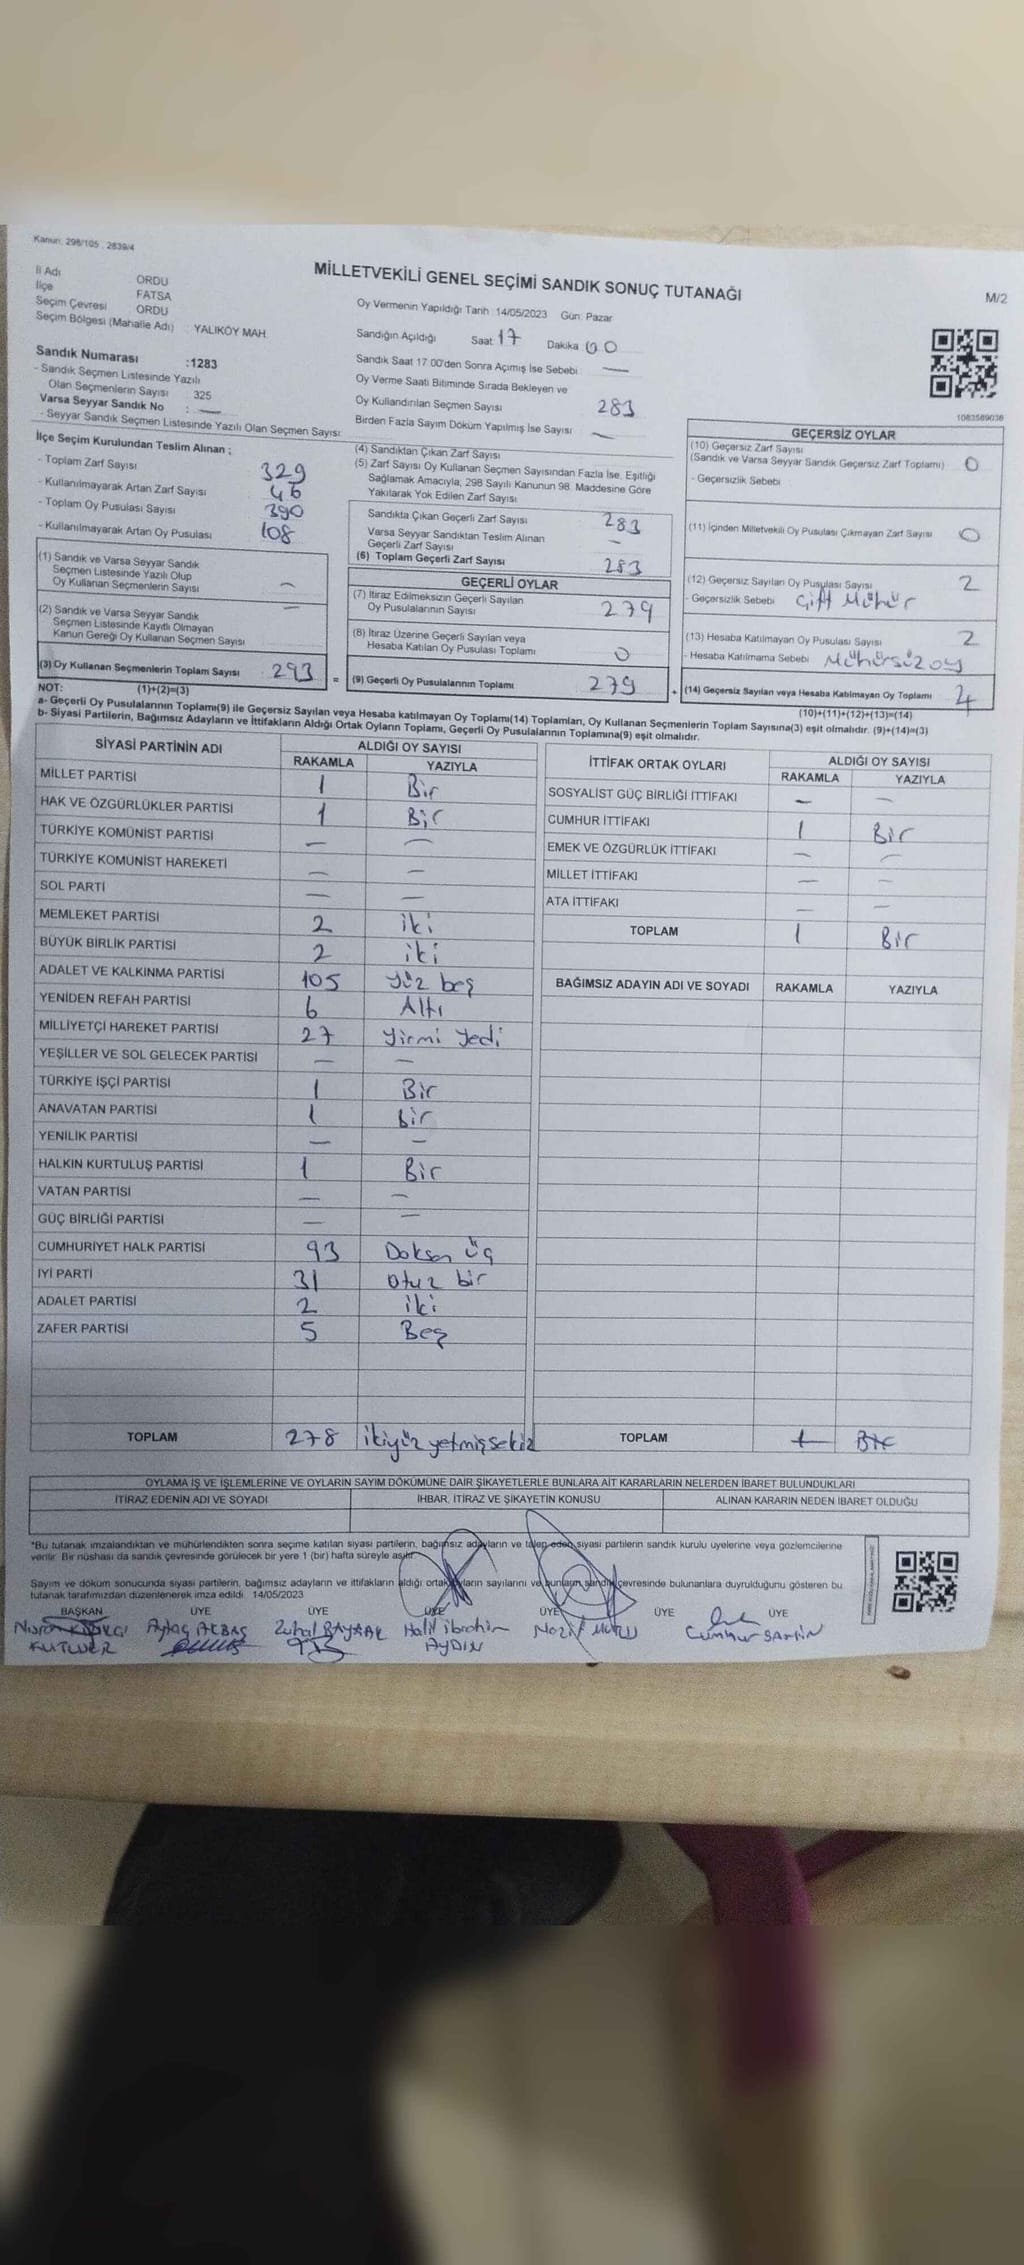 Kanun: 298/105 , 2839/4
MİLLETVEKİLİ GENEL SEÇİMİ SANDIK SONUÇ TUTANAĞI
M/2
İl Adı ORDU
İlçe FATSA
Seçim Çevresi ORDU
Seçim Bölgesi (Mahalle Adı) : YALIKÖY MAH.
Sandık Numarası :1283
- Sandık Seçmen Listesinde Yazılı
Olan Seçmenlerin Sayısı : 325
Varsa Seyyar Sandık No : —
- Seyyar Sandık Seçmen Listesinde Yazılı Olan Seçmen Sayısı:
Oy Vermenin Yapıldığı Tarih :14/05/2023 Gün: Pazar
Sandığın Açıldığı Saat 17 Dakika 00
Sandık Saat 17:00'den Sonra Açımış İse Sebebi —
Oy Verme Saati Bitiminde Sırada Bekleyen ve
Oy Kullandırılan Seçmen Sayısı 283
Birden Fazla Sayım Döküm Yapılmış İse Sayısı —
1083589036
İlçe Seçim Kurulundan Teslim Alınan ;
- Toplam Zarf Sayısı : 329
- Kullanılmayarak Artan Zarf Sayısı : 46
- Toplam Oy Pusulası Sayısı : 390
- Kullanılmayarak Artan Oy Pusulası : 108
(1) Sandık ve Varsa Seyyar Sandık
Seçmen Listesinde Yazılı Olup
Oy Kullanan Seçmenlerin Sayısı : —
(2) Sandık ve Varsa Seyyar Sandık
Seçmen Listesinde Kayıtlı Olmayan
Kanun Gereği Oy Kullanan Seçmen Sayısı —
(3) Oy Kullanan Seçmenlerin Toplam Sayısı : 293 =
(1)+(2)=(3)
(4) Sandıktan Çıkan Zarf Sayısı
(5) Zarf Sayısı Oy Kullanan Seçmen Sayısından Fazla İse, Eşitliği
Sağlamak Amacıyla, 298 Sayılı Kanunun 98. Maddesine Göre
Yakılarak Yok Edilen Zarf Sayısı
Sandıkta Çıkan Geçerli Zarf Sayısı : 283
Varsa Seyyar Sandıktan Teslim Alınan
Geçerli Zarf Sayısı : —
(6) Toplam Geçerli Zarf Sayısı : 283
GEÇERLİ OYLAR
(7) İtiraz Edilmeksizin Geçerli Sayılan
Oy Pusulalarının Sayısı : 279
(8) İtiraz Üzerine Geçerli Sayılan veya
Hesaba Katılan Oy Pusulası Toplamı : 0
(9) Geçerli Oy Pusulalarının Toplamı : 279 +
GEÇERSİZ OYLAR
(10) Geçersiz Zarf Sayısı
(Sandık ve Varsa Seyyar Sandık Geçersiz Zarf Toplamı) : 0
- Geçersizlik Sebebi :
(11) İçinden Milletvekili Oy Pusulası Çıkmayan Zarf Sayısı : 0
(12) Geçersiz Sayılan Oy Pusulası Sayısı : 2
- Geçersizlik Sebebi : Çift Mühür
(13) Hesaba Katılmayan Oy Pusulası Sayısı : 2
- Hesaba Katılmama Sebebi : Mühürsüz oy
(14) Geçersiz Sayılan veya Hesaba Katılmayan Oy Toplamı : 4
(10)+(11)+(12)+(13)=(14)
NOT:
a- Geçerli Oy Pusulalarının Toplamı(9) ile Geçersiz Sayılan veya Hesaba katılmayan Oy Toplamı(14) Toplamları, Oy Kullanan Seçmenlerin Toplam Sayısına(3) eşit olmalıdır. (9)+(14)=(3)
b- Siyasi Partilerin, Bağımsız Adayların ve İttifakların Aldığı Ortak Oyların Toplamı, Geçerli Oy Pusulalarının Toplamına(9) eşit olmalıdır.
SİYASİ PARTİNİN ADI ALDIĞI OY SAYISI
RAKAMLA YAZIYLA
MİLLET PARTİSİ 1 Bir
HAK VE ÖZGÜRLÜKLER PARTİSİ 1 Bir
TÜRKİYE KOMÜNİST PARTİSİ — —
TÜRKİYE KOMÜNİST HAREKETİ — —
SOL PARTİ — —
MEMLEKET PARTİSİ 2 iki
BÜYÜK BİRLİK PARTİSİ 2 iki
ADALET VE KALKINMA PARTİSİ 105 Yüz beş
YENİDEN REFAH PARTİSİ 6 Altı
MİLLİYETÇİ HAREKET PARTİSİ 27 Yirmi Yedi
YEŞİLLER VE SOL GELECEK PARTİSİ — —
TÜRKİYE İŞÇİ PARTİSİ 1 Bir
ANAVATAN PARTİSİ 1 Bir
YENİLİK PARTİSİ — —
HALKIN KURTULUŞ PARTİSİ 1 Bir
VATAN PARTİSİ — —
GÜÇ BİRLİĞİ PARTİSİ — —
CUMHURİYET HALK PARTİSİ 93 Doksan Üç
İYİ PARTİ 31 Otuz bir
ADALET PARTİSİ 2 iki
ZAFER PARTİSİ 5 Beş
TOPLAM 278 ikiyüz yetmişsekiz
İTTİFAK ORTAK OYLARI ALDIĞI OY SAYISI
RAKAMLA YAZIYLA
SOSYALİST GÜÇ BİRLİĞİ İTTİFAKI — —
CUMHUR İTTİFAKI 1 Bir
EMEK VE ÖZGÜRLÜK İTTİFAKI — —
MİLLET İTTİFAKI — —
ATA İTTİFAKI — —
TOPLAM 1 Bir
BAĞIMSIZ ADAYIN ADI VE SOYADI RAKAMLA YAZIYLA
TOPLAM 1 Bir
OYLAMA İŞ VE İŞLEMLERİNE VE OYLARIN SAYIM DÖKÜMÜNE DAİR ŞİKAYETLERLE BUNLARA AİT KARARLARIN NELERDEN İBARET BULUNDUKLARI
İTİRAZ EDENİN ADI VE SOYADI İHBAR, İTİRAZ VE ŞİKAYETİN KONUSU ALINAN KARARIN NEDEN İBARET OLDUĞU
*Bu tutanak imzalandıktan ve mühürlendikten sonra seçime katılan siyasi partilerin, bağımsız adayların ve talep eden siyasi partilerin sandık kurulu üyelerine veya gözlemcilerine
verilir. Bir nüshası da sandık çevresinde görülecek bir yere 1 (bir) hafta süreyle asılır.
Sayım ve döküm sonucunda siyasi partilerin, bağımsız adayların ve ittifakların aldığı ortak oyların sayılarını ve bunların sandık çevresinde bulunanlara duyrulduğunu gösteren bu
tutanak tarafımızdan düzenlenerek imza edildi. 14/05/2023
BAŞKAN ÜYE ÜYE ÜYE ÜYE ÜYE ÜYE
KUTLUER
Aytaç AKBAŞ
Zuhal BAYRAK
Halil İbrahim
AYDIN
Nazif Mutlu
Cumhur ŞAHİN